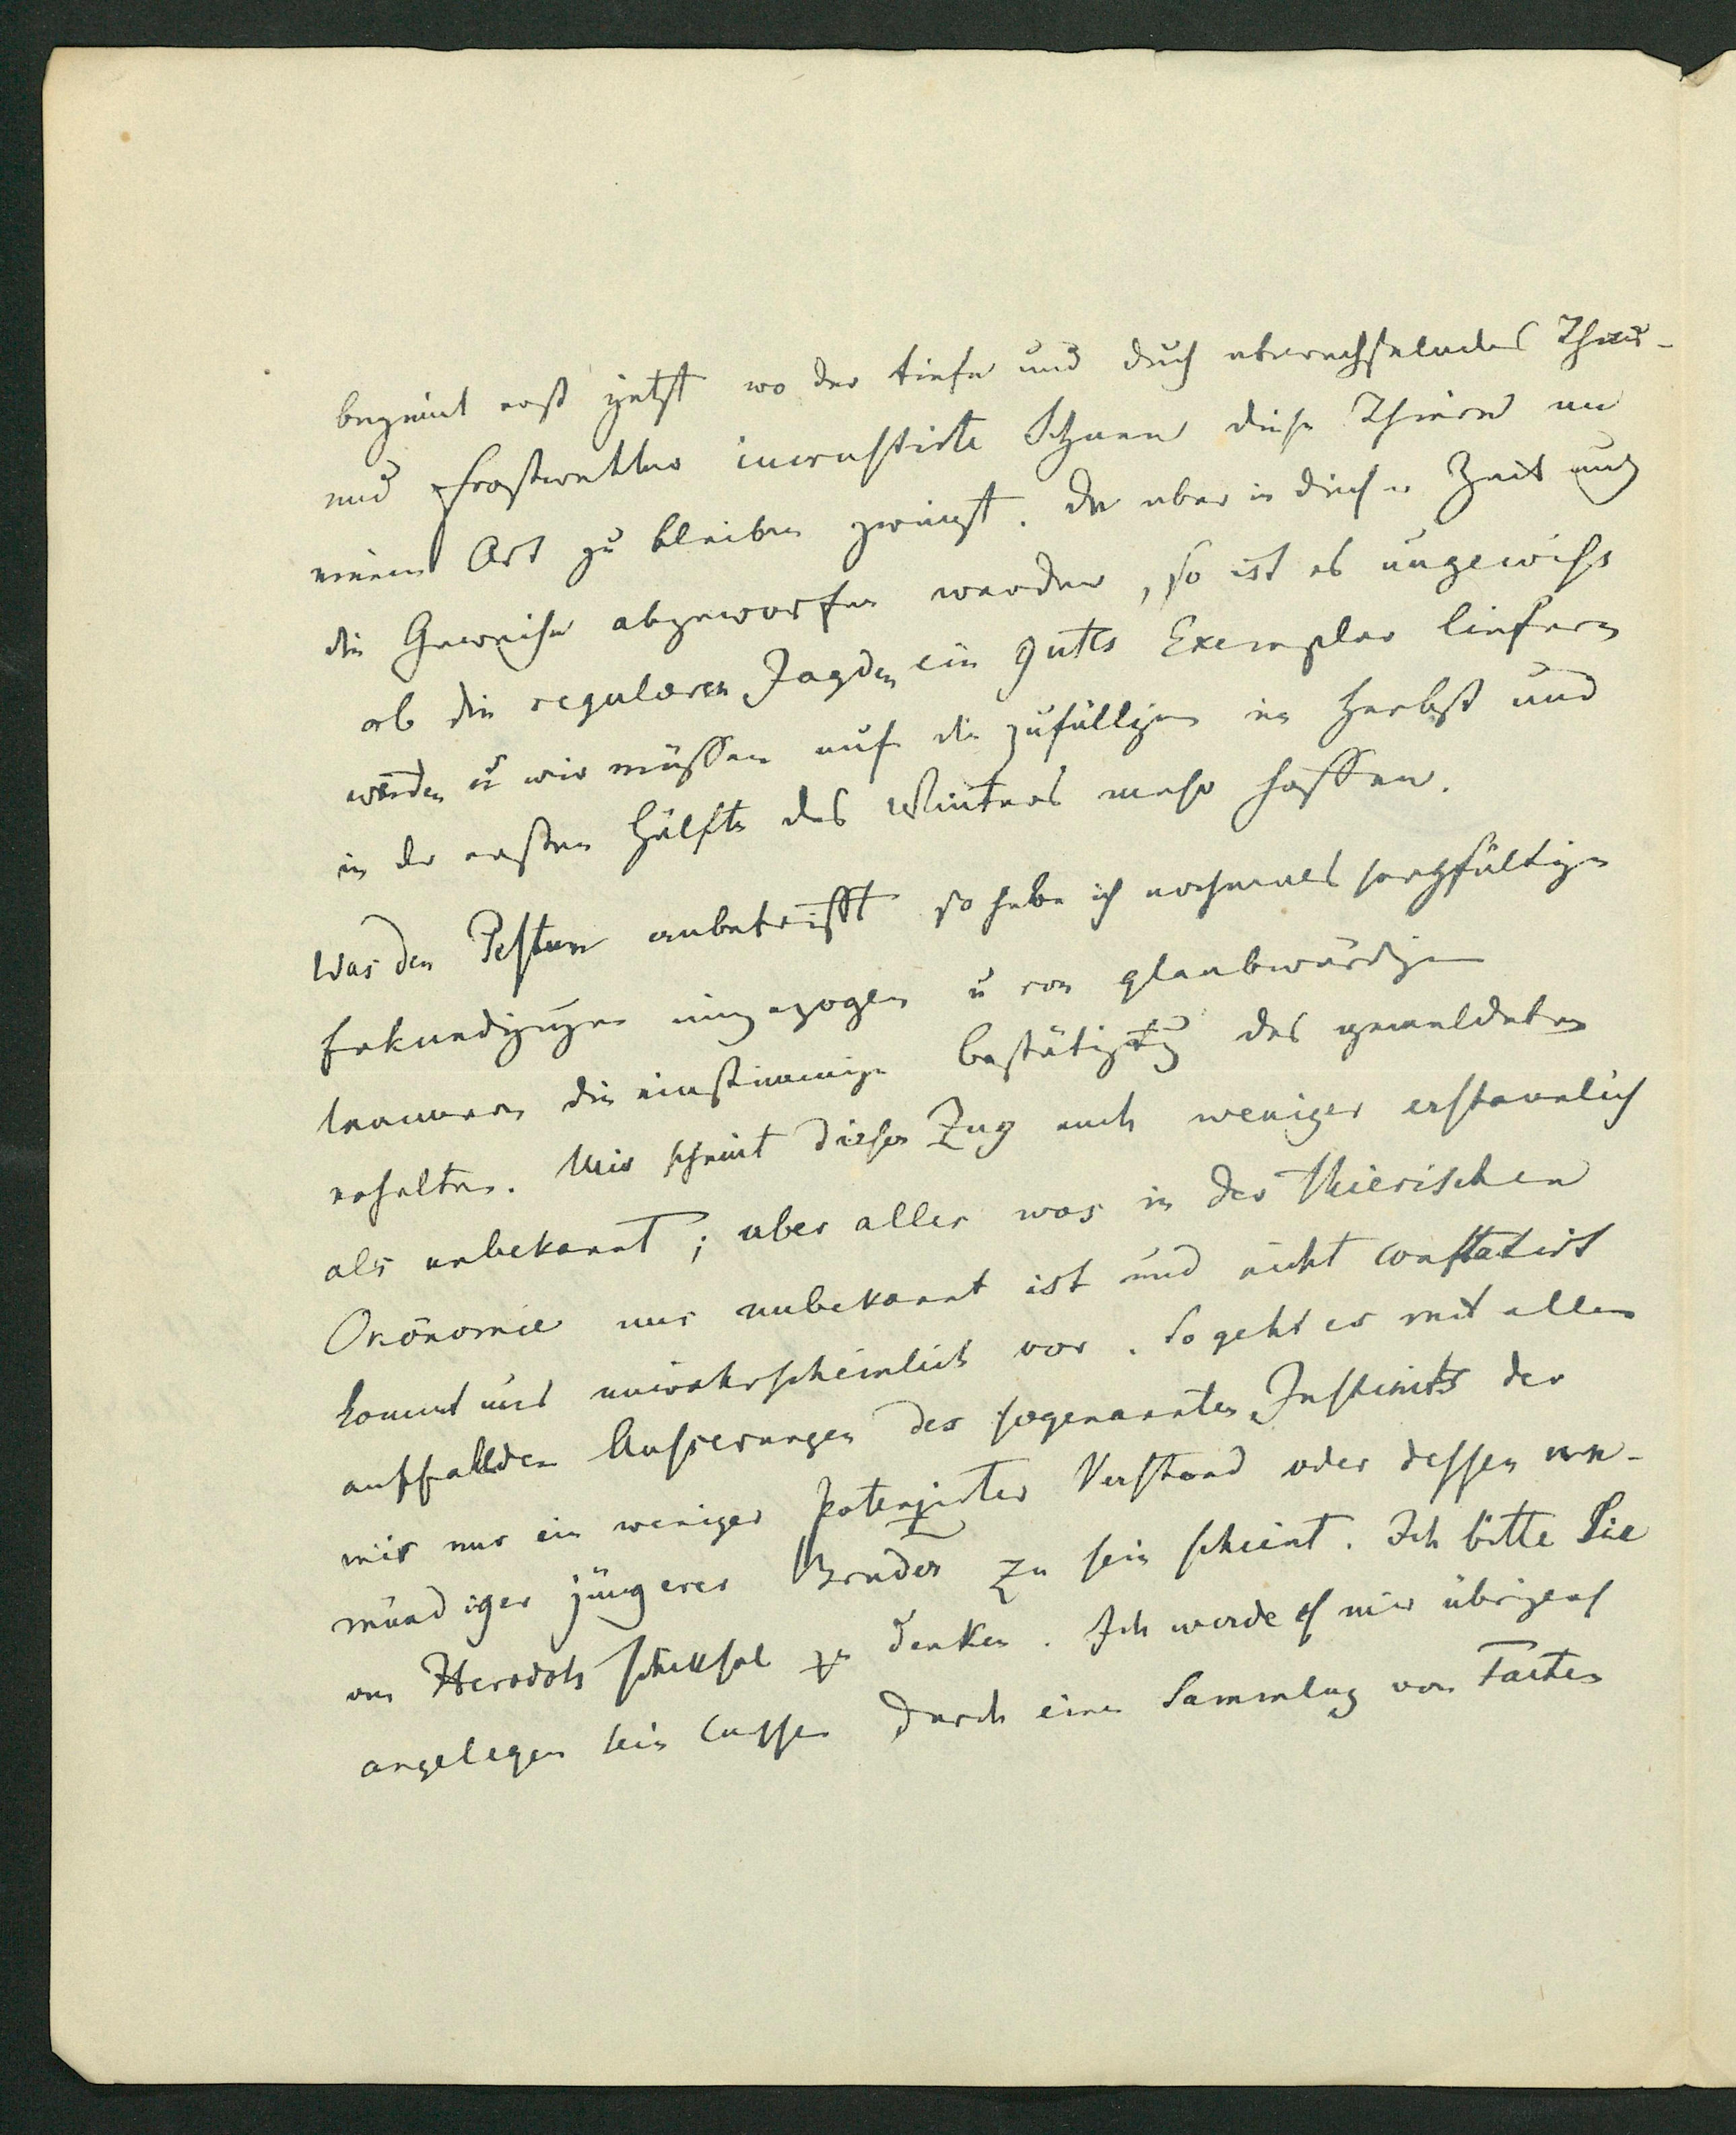 beginnt erst jetzt wo der tiefe und durch abwechselndes Thau-
und Frostwetter incrustirte Schnee diese Thiere an
einem Ort zu bleiben zwingt. Da aber in dieser Zeit auch
die Geweihe abgeworfen werden, so ist es ungewiss
ob die regulären Jagden ein gutes Exemplar liefern
werden u wir müssen auf die zufälligen im Herbst und
in der ersten Hälfte des Winters mehr hoffen.
Was den anbetrifft so habe ich nochmals sorgfältige
Erkundigungen eingezogen u von glaubwürdigen
Männern die einstimmige Bestätigung des gemeldeten
erhalten. Mir scheint dieser Zug auch weniger erstaunlich
als unbekannt; aber alles was in der thierischen
Oekonomie uns unbekannt ist und nicht constatirt
kommt uns unwahrscheinlich vor. So geht es mit allen
auffallden Äusserungen des sogenannten Instincts der
mir nur ein weniger potenzirter Verstand oder dessen un-
mündiger jüngerer Bruder zu sein scheint. Ich bitte Sie
an Herodots Schicksal zu denken. Ich werde es mir übrigens
angelegen sein lassen durch eine Sammlung von Facten